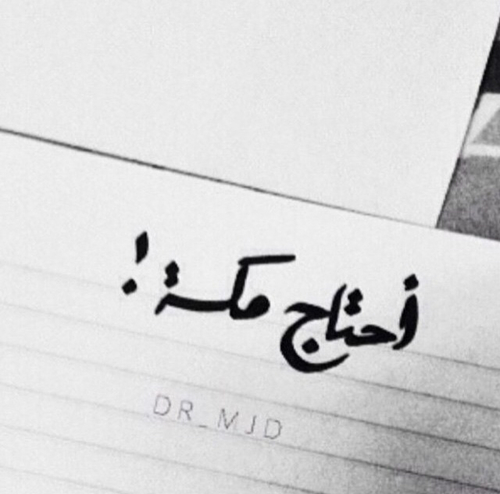 أحتاج مكة !
DR_MJD